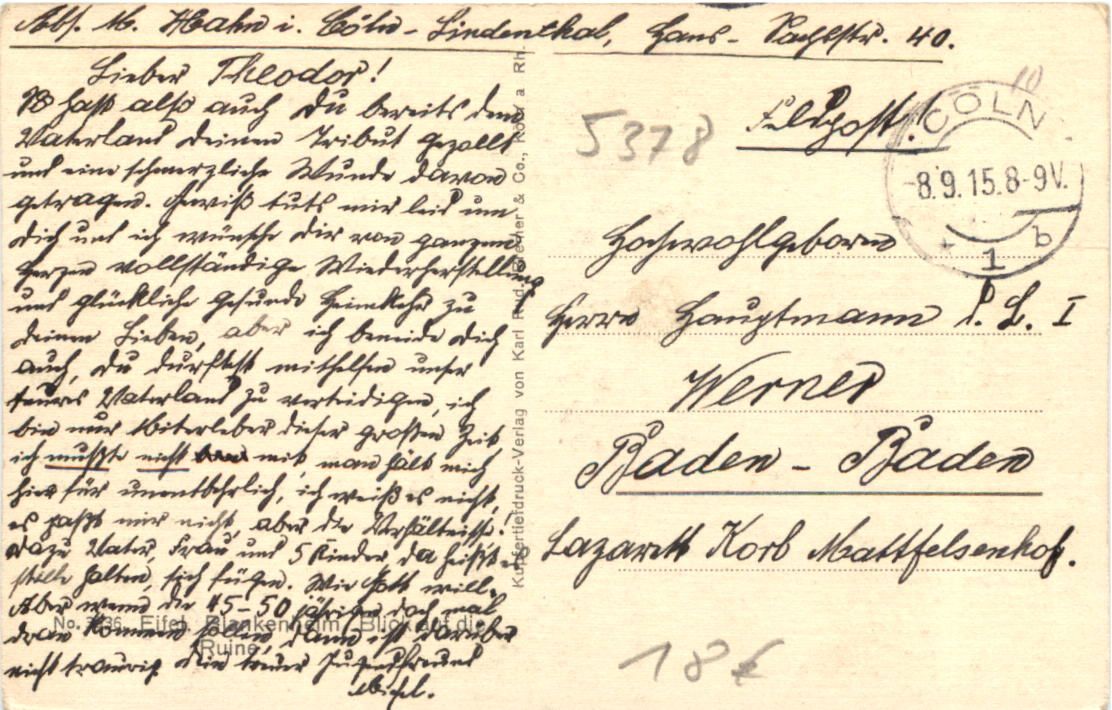 Abs. M. Hahn i. Cöln-Lindenthal, Hans-Sachsstr. 40.
Lieber Theodor!
So hast also auch Du bereits dem
Vaterland Deinen Tribut gezollt
und eine schmerzliche Wunde davon
getragen. Gewiß tuts mir leid um
Dich und ich wünsche Dir von ganzem
Herzen vollständige Wiederherstellung
und glückliche gesunde Heimkehr zu
Deinen Lieben, aber ich beneide Dich
auch, Du durftest mithelfen unser
teures Vaterland zu verteidigen, ich
bin nur Miterleber dieser großen Zeit
ich mußte nicht mit man hält mich
hier für unentbehrlich, ich weiß es nicht,
es paßt mir nicht, aber die Verhältnisse!
Dazu Vater, Frau und 5 Kinder da heißts
stille halten, sich fügen. Wie Gott will.
Aber wenn die 45-50 jährigen doch mal
dran kommen sollen, dann ist darüber
nicht traurig Dein treuer Jugendfreund
No. Eifel. Blankenheim, Blick auf die
Ruine
Kupfertiefdruck-Verlag von Karl Rud. & Co., Köln a. Rh.
5378
Feldpost!
CÖLN
10
-8.9.15.8-9V.
* 1 b
Hochwohlgeboren
Herrn Hauptmann d. L. I
Werner
Baden-Baden
Lazarett Korb Mattfelsenhof.
18 €